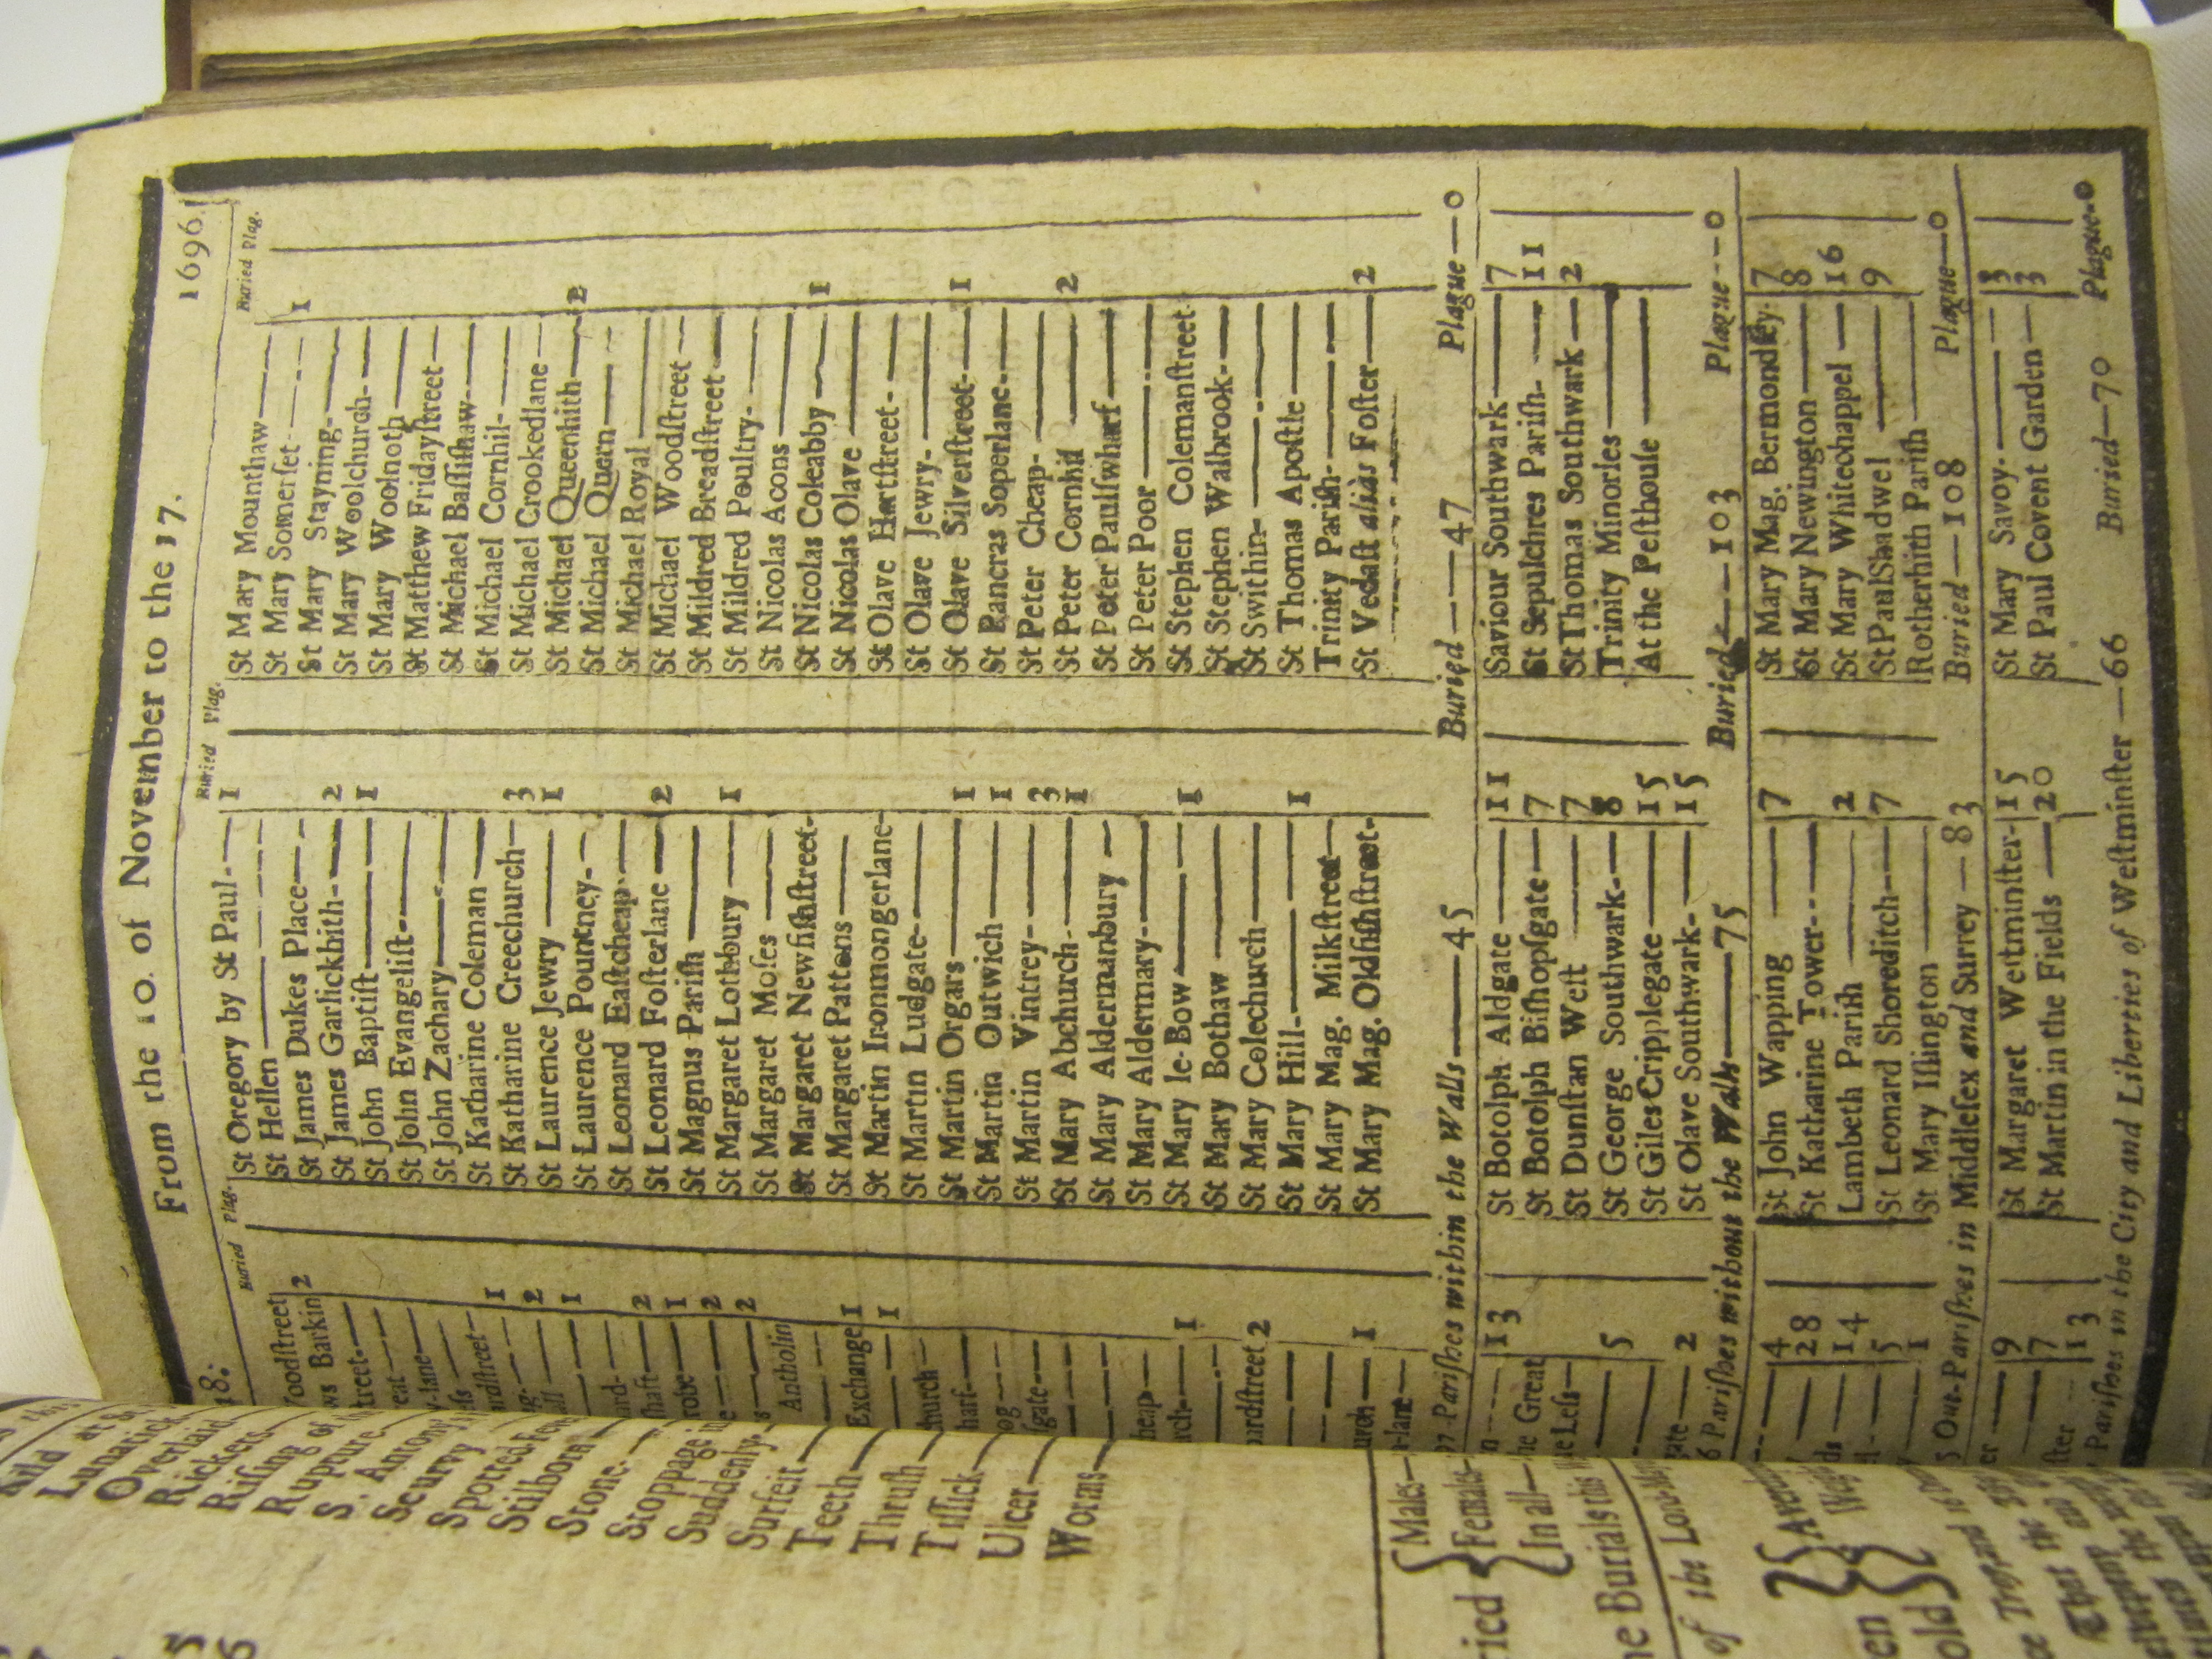 From the 10. of November to the 17. 1696.
48:
Buried Plag.
Woodstreet
Barkin 2
1
2
1
2
1
2
2
Antholin
Exchange 1
1
1
2
1
Buried Plag.
St Gregory by St Paul-— 1
St Hellen ———
St James Dukes Place—-
St James Garlickhith-— 2
St John Baptiſt—— 1
St John Evangeliſt-——
St John Zachary——
St Katharine Coleman —
St Katharine Creechurch— 3
St Laurence Jewry —— 1
St Laurence Pountney-—
St Leonard Eaſtcheap-—
St Leonard Foſterlane — 2
St Magnus Pariſh ——
St Margaret Lothbury — 1
St Margaret Moſes ——
St Margaret Newfiſhſtreet-
St Margaret Pattons ——
St Martin Ironmongerlane-
St Martin Ludgate-——
St Martin Orgars—— 1
St Martin Outwich—— 1
St Martin Vintrey-—— 3
St Mary Abchurch-—— 1
St Mary Aldermanbury —
St Mary Aldermary-——
St Mary le-Bow —— 1
St Mary Bothaw ——
St Mary Colechurch——
St Mary Hill-—— 1
St Mary Mag. Milkſtreet—
St Mary Mag. Oldfiſhſtreet-
Buried Plag.
St Mary Mounthaw——
St Mary Somerſet-—— 1
St Mary Stayning-——
St Mary Woolchurch-—
St Mary Woolnoth ——
St Matthew Fridayſtreet—
St Michael Baſſiſhaw-—
St Michael Cornhil-——
St Michael Crookedlane—
St Michael Queenhith— 2
St Michael Quern——
St Michael Royal ——
St Michael Woodſtreet —
St Mildred Breadſtreet —
St Mildred Poultry-——
St Nicolas Acons ——
St Nicolas Coleabby — 1
St Nicolas Olave ——
St Olave Hartſtreet-—
St Olave Jewry-——
St Olave Silverſtreet-— 1
St Pancras Soperlane-—
St Peter Cheap-——
St Peter Cornhil —— 2
St Peter Paulſwharf——
St Peter Poor ——
St Stephen Colemanſtreet-
St Stephen Walbrook-—
St Swithin-——
St Thomas Apoſtle ——
Trinity Pariſh-——
St Vedaſt aliàs Foſter— 2
97 Pariſhes within the Walls——45 Buried——47 Plague—0
13
the Great
the Leſs
5
2
St Botolph Aldgate —— 11
St Botolph Biſhopſgate— 7
St Dunſtan Weſt —— 7
St George Southwark-— 8
St Giles Cripplegate—— 15
St Olave Southwark-— 15
Saviour Southwark—— 7
St Sepulchres Pariſh-— 11
St Thomas Southwark— 2
Trinity Minories——
At the Peſthouſe ——
16 Pariſhes without the Walls——75 Buried——103 Plague--0
4
28
14
5
1
St John Wapping —— 7
St Katharine Tower-—
Lambeth Pariſh —— 2
St Leonard Shoreditch-— 7
St Mary Iſlington ——
St Mary Mag. Bermondſey- 7
St Mary Newington—— 8
St Mary Whitechappel — 16
St Paul Shadwel —— 9
Rotherhith Pariſh ——
15 Out-Pariſhes in Middleſex and Surrey — 83 Buried—108 Plague—0
9
7
13
St Margaret Weſtminſter- 15
St Martin in the Fields — 20
St Mary Savoy-—— 3
St Paul Covent Garden— 3
Pariſhes in the City and Liberties of Weſtminſter —66 Buried—70 Plague-0
Lunatick
Overlaid
Rickets
Riſing of
Rupture
S. Antony's
Scurvy
Spotted Fever
Stilborn
Stone
Stoppage in
Suddenly
Surfeit
Teeth
Thruſh
Tiſſick
Ulcer
Worms
Males—
Females—
In all—
the Burials this
of the Lord